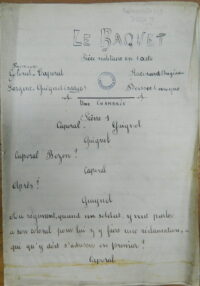 LE BAQUET
Pièce militaire en 1 acte
Colonel - Caporal
Sergent - Guignol
Une Chambrée
Scène 1
Caporal Guignol
Guignol
Caporal Bozon ?
Caporal
Après ?
Guignol
Au régiment, quand un soldat, y veut parler
à son colonel pour lui y faire une réclamation, à
qui qu'y doit s'adresser en premier ?
Caporal